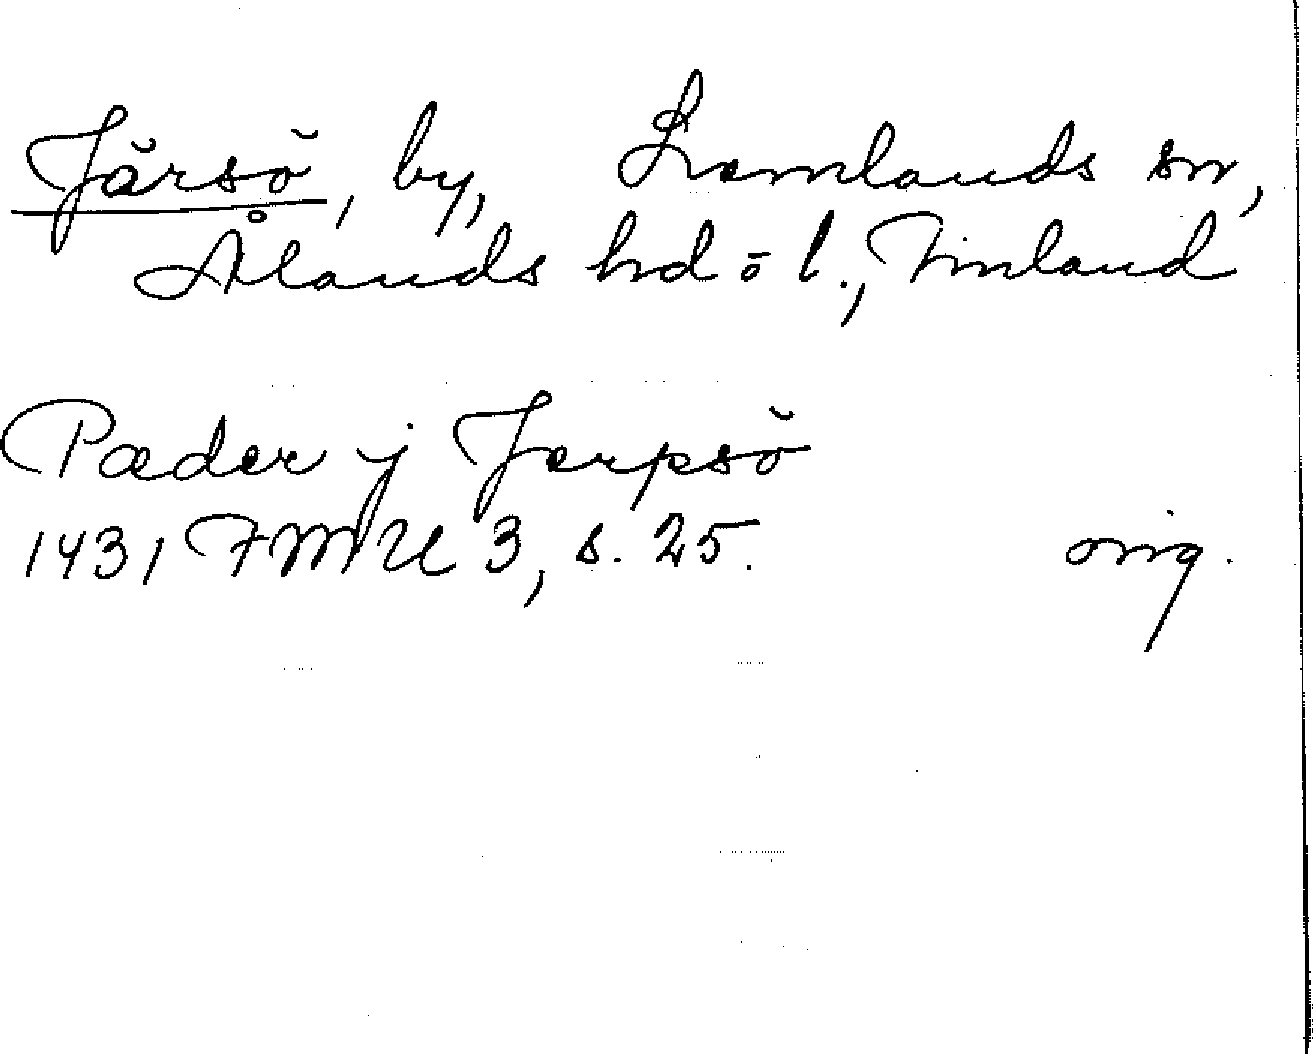 Järsö, by, Lemlands sn,
Ålands hd o l., Finland
Pæder j Jerpsö
1431 FMU 3, s. 25. orig.